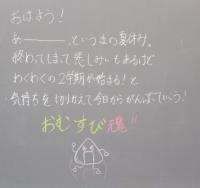 おはよう!
あ―――。という間の夏休み。
終わってしまって悲しみもあるけど
わくわくの2学期が始まる!と
気持ちをきりかえて今日からがんばっていこう!
おむすび魂"